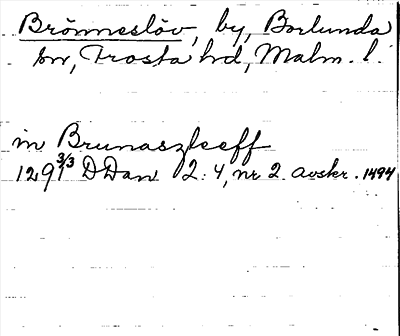 Brönneslöv, by, Borlunda
sn, Frosta hd, Malm. l.
in Brunaszleeff
1291 3/3 DDan 2:4, nr 2. avskr. 1494